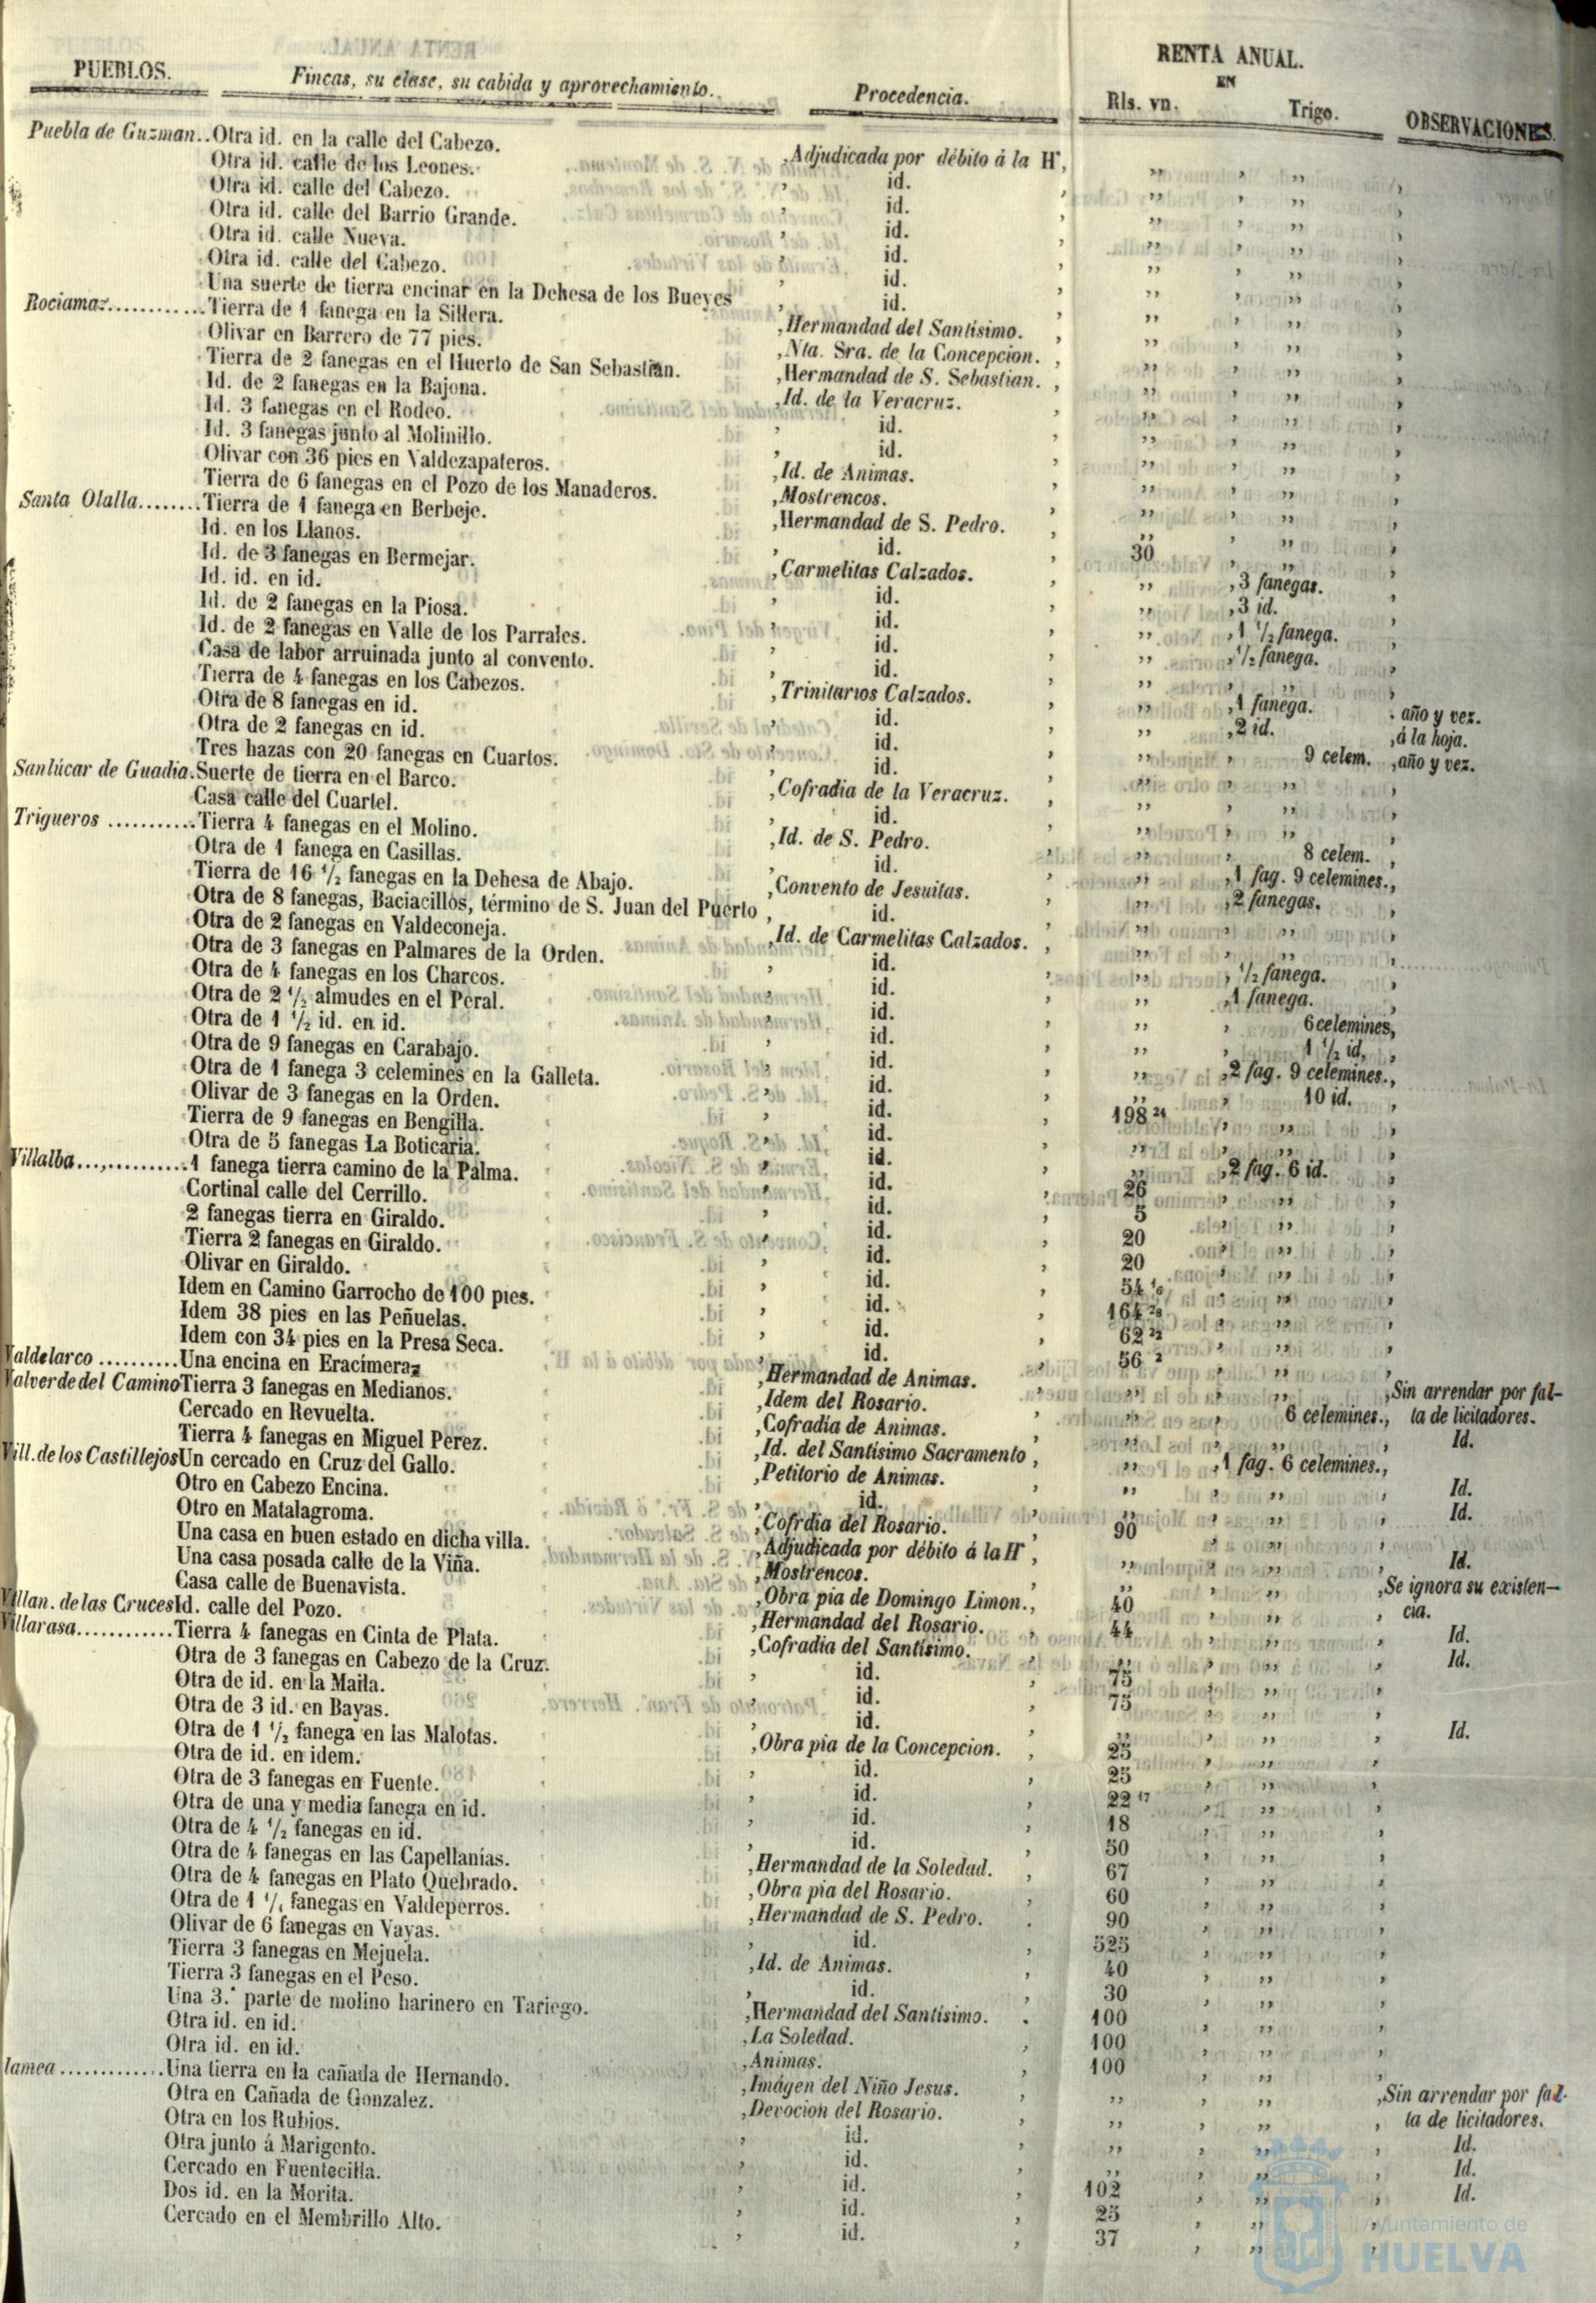 PUEBLOS. Fincas, su clase, su cabida y aprovechamiento. Procedencia. RENTA ANUAL. EN Rls. vn. Trigo. OBSERVACIONES.
Puebla de Guzman..Otra id. en la calle del Cabezo. , Adjudicada por débito á la Hª, ,, , ,, ,
Otra id. calle de los Leones. , id. , ,, , ,, ,
Otra id. calle del Cabezo. , id. , ,, , ,, ,
Otra id. calle del Barrio Grande. , id. , ,, , ,, ,
Otra id. calle Nueva. , id. , ,, , ,, ,
Otra id. calle del Cabezo. , id. , ,, , ,, ,
Una suerte de tierra encinar en la Dehesa de los Bueyes , id. , ,, , ,, ,
Rociamaz............Tierra de 1 fanega en la Sillera. , Hermandad del Santísimo. , ,, , ,, ,
Olivar en Barrero de 77 pies. , Nta. Sra. de la Concepcion. , ,, , ,, ,
Tierra de 2 fanegas en el Huerto de San Sebastian. , Hermandad de S. Sebastian. , ,, , ,, ,
Id. de 2 fanegas en la Bajona. , Id. de la Veracruz. , ,, , ,, ,
Id. 3 fanegas en el Rodeo. , id. , ,, , ,, ,
Id. 3 fanegas junto al Molinillo. , id. , ,, , ,, ,
Olivar con 36 pies en Valdezapateros. , Id. de Animas. , ,, , ,, ,
Tierra de 6 fanegas en el Pozo de los Manaderos. , Mostrencos. , ,, , ,, ,
Santa Olalla........Tierra de 1 fanega en Berbeje. , Hermandad de S. Pedro. , ,, , ,, ,
Id. en los Llanos. , id. , 30 , ,, ,
Id. de 3 fanegas en Bermejar. , Carmelitas Calzados. , ,, , 3 fanegas. ,
Id. id. en id. , id. , ,, , 3 id. ,
Id. de 2 fanegas en la Piosa. , id. , ,, , 1 1/2 fanega. ,
Id. de 2 fanegas en Valle de los Parrales. , id. , ,, , 1/2 fanega. ,
Casa de labor arruinada junto al convento. , id. , ,, , ,, ,
Tierra de 4 fanegas en los Cabezos. , Trinitarios Calzados. , ,, , 1 fanega. , año y vez.
Otra de 8 fanegas en id. , id. , ,, , 2 id. , á la hoja.
Otra de 2 fanegas en id. , id. , ,, , 9 celem. , año y vez.
Tres hazas con 20 fanegas en Cuartos. , id. , ,, , ,, ,
Sanlúcar de Guadia.Suerte de tierra en el Barco. , Cofradia de la Veracruz. , ,, , ,, ,
Casa calle del Cuartel. , id. , ,, , ,, ,
Trigueros ...........Tierra 4 fanegas en el Molino. , Id. de S. Pedro. , ,, , 8 celem. ,
Otra de 1 fanega en Casillas. , id. , ,, , 1 fag. 9 celemines.,
Tierra de 16 1/2 fanegas en la Dehesa de Abajo. , Convento de Jesuitas. , ,, , 2 fanegas. ,
Otra de 8 fanegas, Baciacillos, término de S. Juan del Puerto , id. , ,, , ,, ,
Otra de 2 fanegas en Valdeconeja. , Id. de Carmelitas Calzados. , ,, , ,, ,
Otra de 3 fanegas en Palmares de la Orden. , id. , ,, , 1/2 fanega. ,
Otra de 4 fanegas en los Charcos. , id. , ,, , 1 fanega. ,
Otra de 2 1/2 almudes en el Peral. , id. , ,, , 6 celemines,
Otra de 1 1/2 id. en id. , id. , ,, , 1 1/2 id, ,
Otra de 9 fanegas en Carabajo. , id. , ,, , 2 fag. 9 celemines.,
Otra de 1 fanega 3 celemines en la Galleta. , id. , ,, , 10 id. ,
Olivar de 3 fanegas en la Orden. , id. , 198 24 , ,, ,
Tierra de 9 fanegas en Bengilla. , id. , ,, , ,, ,
Otra de 5 fanegas La Boticaria. , id. , ,, , 2 fag. 6 id. ,
Villalba...,..........1 fanega tierra camino de la Palma. , id. , 26 , ,, ,
Cortinal calle del Cerrillo. , id. , 5 , ,, ,
2 fanegas tierra en Giraldo. , id. , 20 , ,, ,
Tierra 2 fanegas en Giraldo. , id. , 20 , ,, ,
Olivar en Giraldo. , id. , 54 16 , ,, ,
Idem en Camino Garrocho de 100 pies. , id. , 164 28 , ,, ,
Idem 38 pies en las Peñuelas. , id. , 62 22 , ,, ,
Idem con 34 pies en la Presa Seca. , id. , 56 2 , ,, ,
Valdelarco ..........Una encina en Eracimeraz , Hermandad de Animas. , ,, , ,, , Sin arrendar por fal-
ta de licitadores.
Valverde del Camino Tierra 3 fanegas en Medianos. , Idem del Rosario. , ,, , 6 celemines.,
Cercado en Revuelta. , Cofradia de Animas. , ,, , ,, , Id.
Tierra 4 fanegas en Miguel Perez. , Id. del Santísimo Sacramento , ,, , 1 fag. 6 celemines.,
Vill. de los Castillejos Un cercado en Cruz del Gallo. , Petitorio de Animas. , ,, , ,, , Id.
Otro en Cabezo Encina. , id. , ,, , ,, , Id.
Otro en Matalagroma. , Cofrdia del Rosario. , 90 , ,, ,
Una casa en buen estado en dicha villa. , Adjudicada por débito á la Hª , ,, , ,, , Id.
Una casa posada calle de la Viña. , Mostrencos. , ,, , ,, , Se ignora su existen-
cia.
Casa calle de Buenavista. , Obra pia de Domingo Limon., 40 , ,, ,
Villan. de las Cruces Id. calle del Pozo. , Hermandad del Rosario. , 44 , ,, , Id.
Villarasa............Tierra 4 fanegas en Cinta de Plata. , Cofradia del Santísimo. , ,, , ,, , Id.
Otra de 3 fanegas en Cabezo de la Cruz. , id. , 75 , ,, ,
Otra de id. en la Maila. , id. , 75 , ,, ,
Otra de 3 id. en Bayas. , id. , ,, , ,, , Id.
Otra de 1 1/2 fanega en las Malotas. , Obra pia de la Concepcion. , 25 , ,, ,
Otra de id. en idem. , id. , 25 , ,, ,
Otra de 3 fanegas en Fuente. , id. , 22 17 , ,, ,
Otra de una y media fanega en id. , id. , 18 , ,, ,
Otra de 4 1/2 fanegas en id. , id. , 50 , ,, ,
Otra de 4 fanegas en las Capellanías. , Hermandad de la Soledad. , 67 , ,, ,
Otra de 4 fanegas en Plato Quebrado. , Obra pia del Rosario. , 60 , ,, ,
Otra de 1 1/4 fanegas en Valdeperros. , Hermandad de S. Pedro. , 90 , ,, ,
Olivar de 6 fanegas en Vayas. , id. , 525 , ,, ,
Tierra 3 fanegas en Mejuela. , Id. de Animas. , 40 , ,, ,
Tierra 3 fanegas en el Peso. , id. , 30 , ,, ,
Una 3.ª parte de molino harinero en Tariego. , Hermandad del Santísimo. , 100 , ,, ,
Otra id. en id. , La Soledad. , 100 , ,, ,
Otra id. en id. , Animas. , 100 , ,, ,
lamea .............Una tierra en la cañada de Hernando. , Imágen del Niño Jesus. , ,, , ,, , Sin arrendar por fal-
ta de licitadores.
Otra en Cañada de Gonzalez. , Devocion del Rosario. , ,, , ,, , Id.
Otra en los Rubios. , id. , ,, , ,, , Id.
Otra junto á Marigento. , id. , ,, , ,, , Id.
Cercado en Fuentecilla. , id. , 102 , ,, ,
Dos id. en la Morita. , id. , 25 , ,, ,
Cercado en el Membrillo Alto. , id. , 37 , ,, ,
Ayuntamiento de
HUELVA